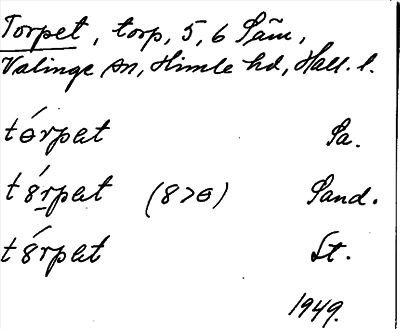 Torpet, torp, 5, 6 Säm,
Valinge sn, Himle hd, Hall. l.
tɵ́rpat Pa.
t8́rpat (8>ɵ) Sand.
t8́rpat St.
1949.